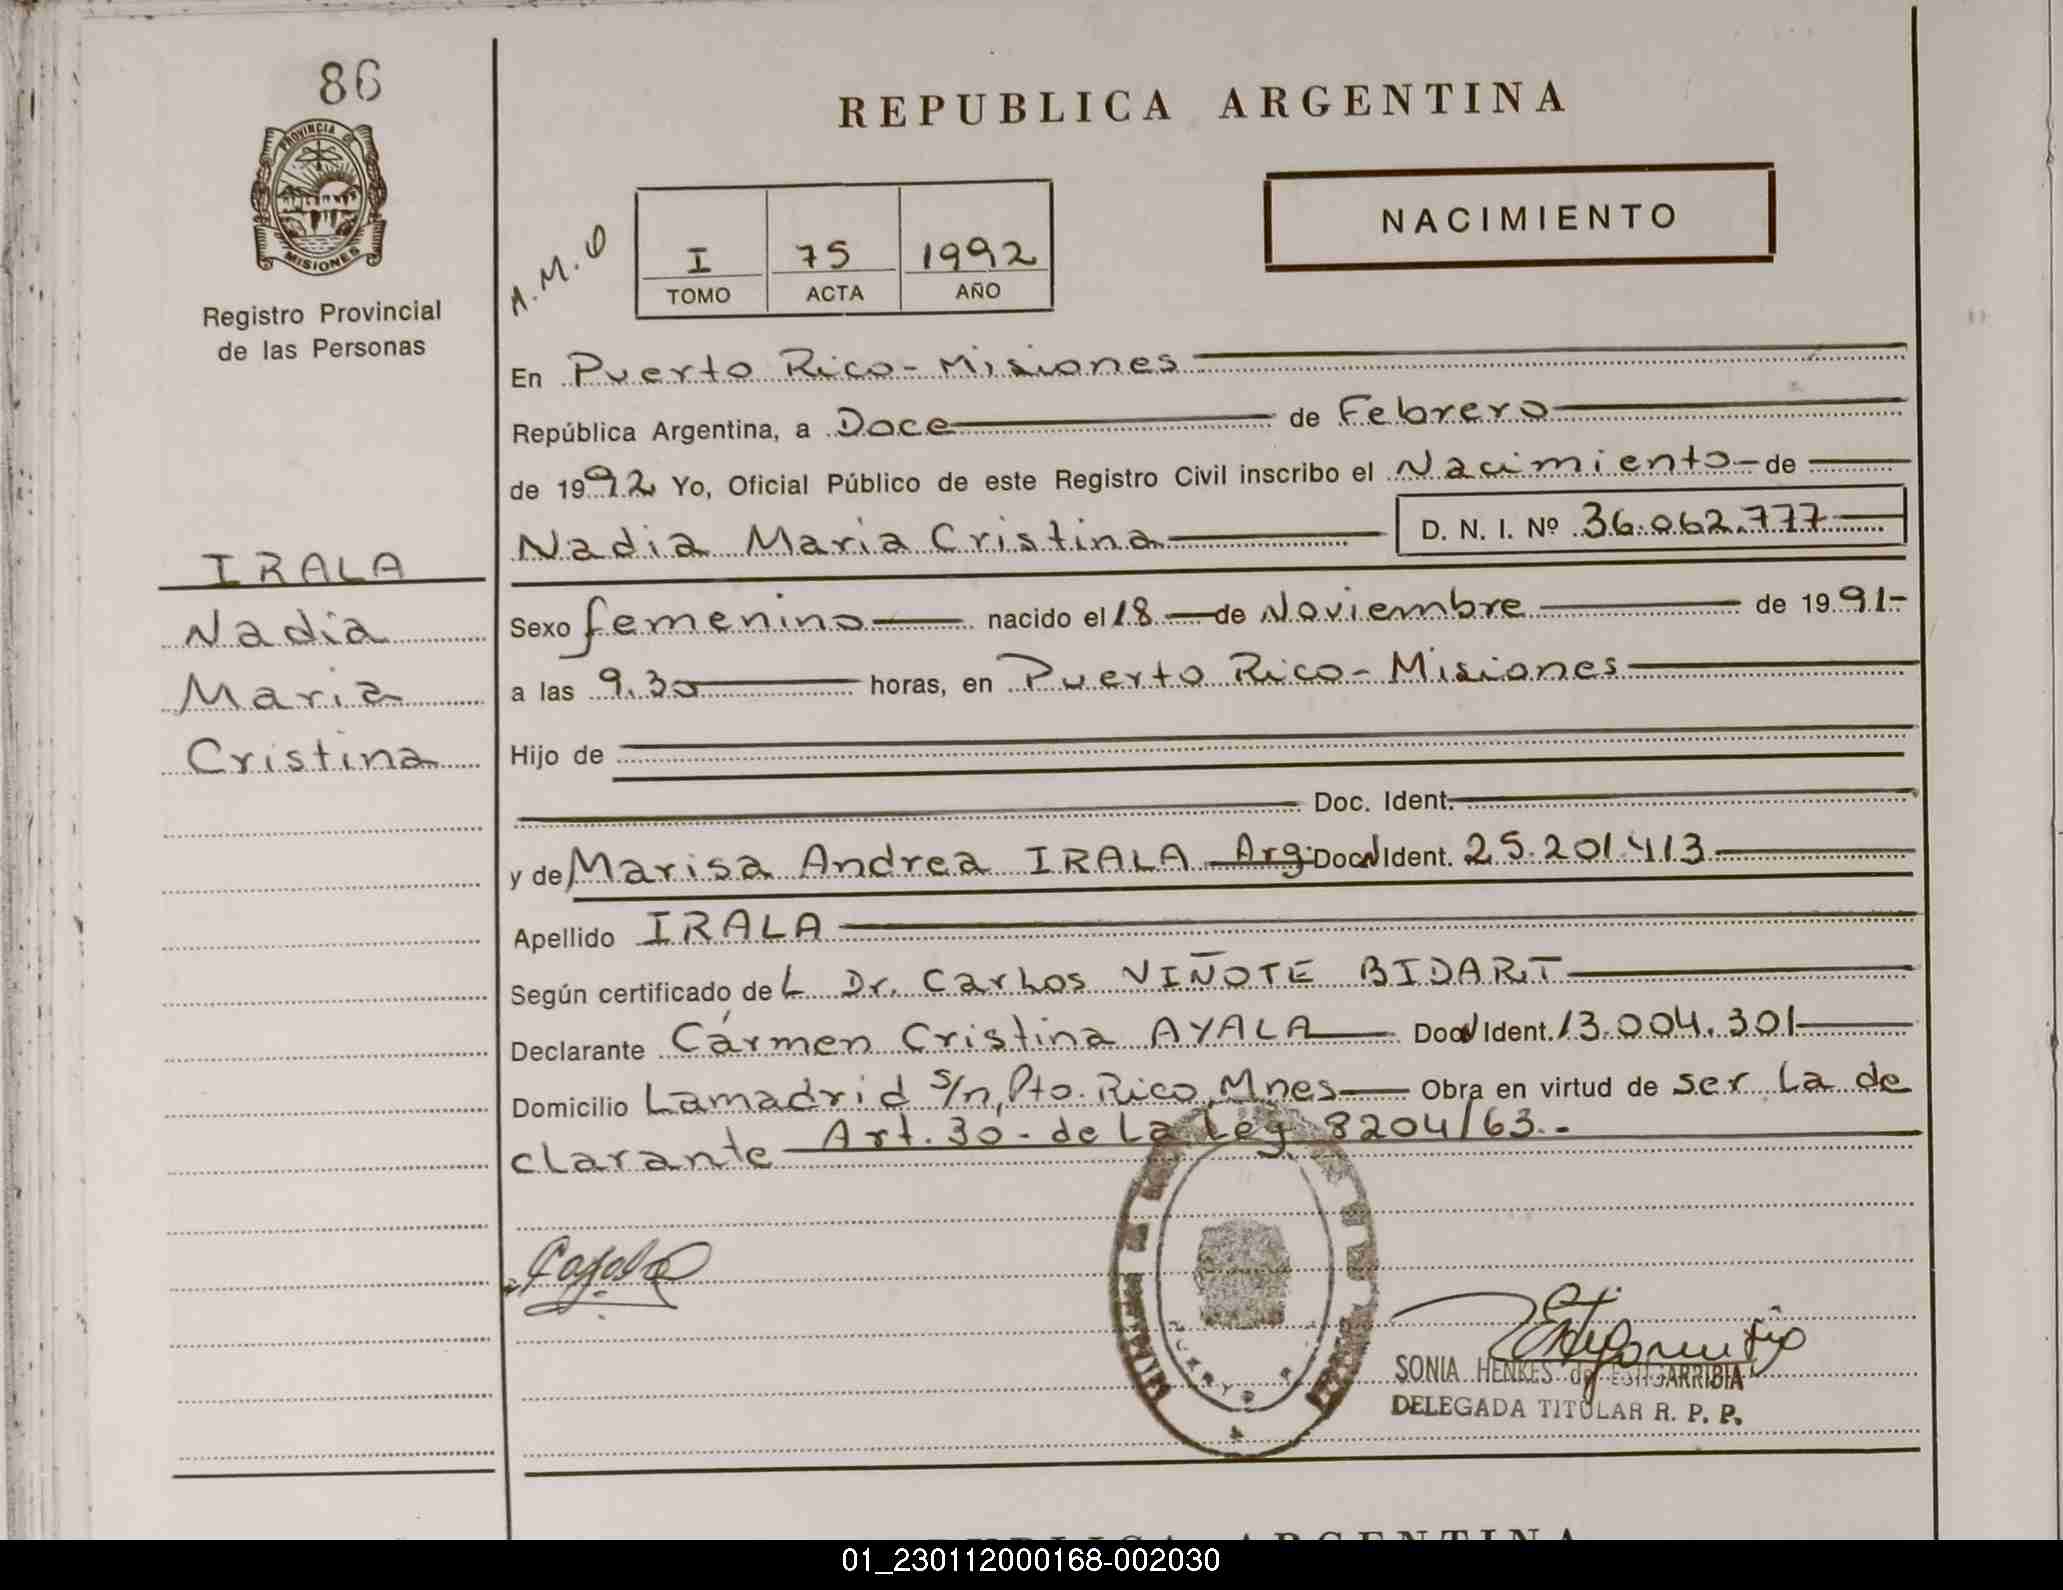 86
PROVINCIA DE
MISIONES
Registro Provincial
de las Personas
IRALA
Nadia
Maria
Cristina
REPUBLICA ARGENTINA
NACIMIENTO
I 75 1992
TOMO ACTA AÑO
En Puerto Rico - Misiones
República Argentina, a Doce de Febrero
de 1992 Yo, Oficial Público de este Registro Civil inscribo el Nacimiento de
Nadia Maria Cristina D. N. I. Nº 36.062.777
Sexo femenino nacido el 18 de Noviembre de 1991-
a las 9.30 horas, en Puerto Rico - Misiones
Hijo de
Doc. Ident.
y de Marisa Andrea IRALA Arg. Doc. Ident. 25.201.413
Apellido IRALA
Según certificado del Dr. Carlos VIÑOTE BIDART
Declarante Cármen Cristina AYALA Doc. Ident. 13.004.301
Domicilio Lamadrid s/n, Pto. Rico, Mnes Obra en virtud de ser la de
clarante Art. 30 - de la Ley 8204/63.-
SONIA HENKES de
DELEGADA TITULAR R. P. P.
01_230112000168-002030